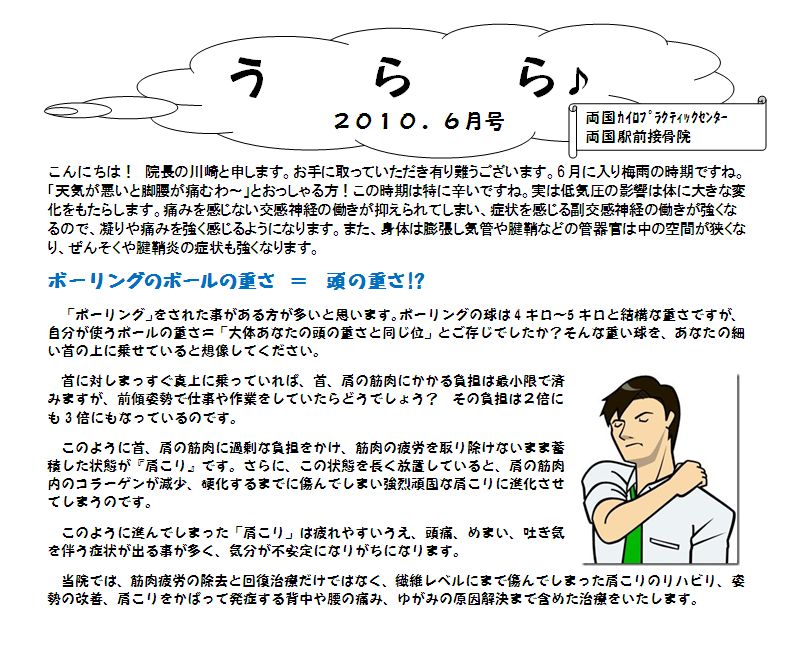 う ら ら♪
２０１０．６月号
両国ｶｲﾛﾌﾟﾗｸﾃｨｯｸｾﾝﾀｰ
両国駅前接骨院
こんにちは！　院長の川崎と申します。お手に取っていただき有り難うございます。６月に入り梅雨の時期ですね。
「天気が悪いと脚腰が痛むわ～」とおっしゃる方！この時期は特に辛いですね。実は低気圧の影響は体に大きな変
化をもたらします。痛みを感じない交感神経の働きが抑えられてしまい、症状を感じる副交感神経の働きが強くな
るので、凝りや痛みを強く感じるようになります。また、身体は膨張し気管や腱鞘などの管器官は中の空間が狭くな
り、ぜんそくや腱鞘炎の症状も強くなります。
ボーリングのボールの重さ　＝　頭の重さ!?
「ボーリング」をされた事がある方が多いと思います。ボーリングの球は４キロ～５キロと結構な重さですが、
自分が使うボールの重さ＝「大体あなたの頭の重さと同じ位」とご存じでしたか？そんな重い球を、あなたの細
い首の上に乗せていると想像してください。
首に対しまっすぐ真上に乗っていれば、首、肩の筋肉にかかる負担は最小限で済
みますが、前傾姿勢で仕事や作業をしていたらどうでしょう？　その負担は２倍に
も３倍にもなっているのです。
このように首、肩の筋肉に過剰な負担をかけ、筋肉の疲労を取り除けないまま蓄
積した状態が『肩こり』です。さらに、この状態を長く放置していると、肩の筋肉
内のコラーゲンが減少、硬化するまでに傷んでしまい強烈頑固な肩こりに進化させ
てしまうのです。
このように進んでしまった「肩こり」は疲れやすいうえ、頭痛、めまい、吐き気
を伴う症状が出る事が多く、気分が不安定になりがちになります。
当院では、筋肉疲労の除去と回復治療だけではなく、繊維レベルにまで傷んでしまった肩こりのリハビリ、姿
勢の改善、肩こりをかばって発症する背中や腰の痛み、ゆがみの原因解決まで含めた治療をいたします。